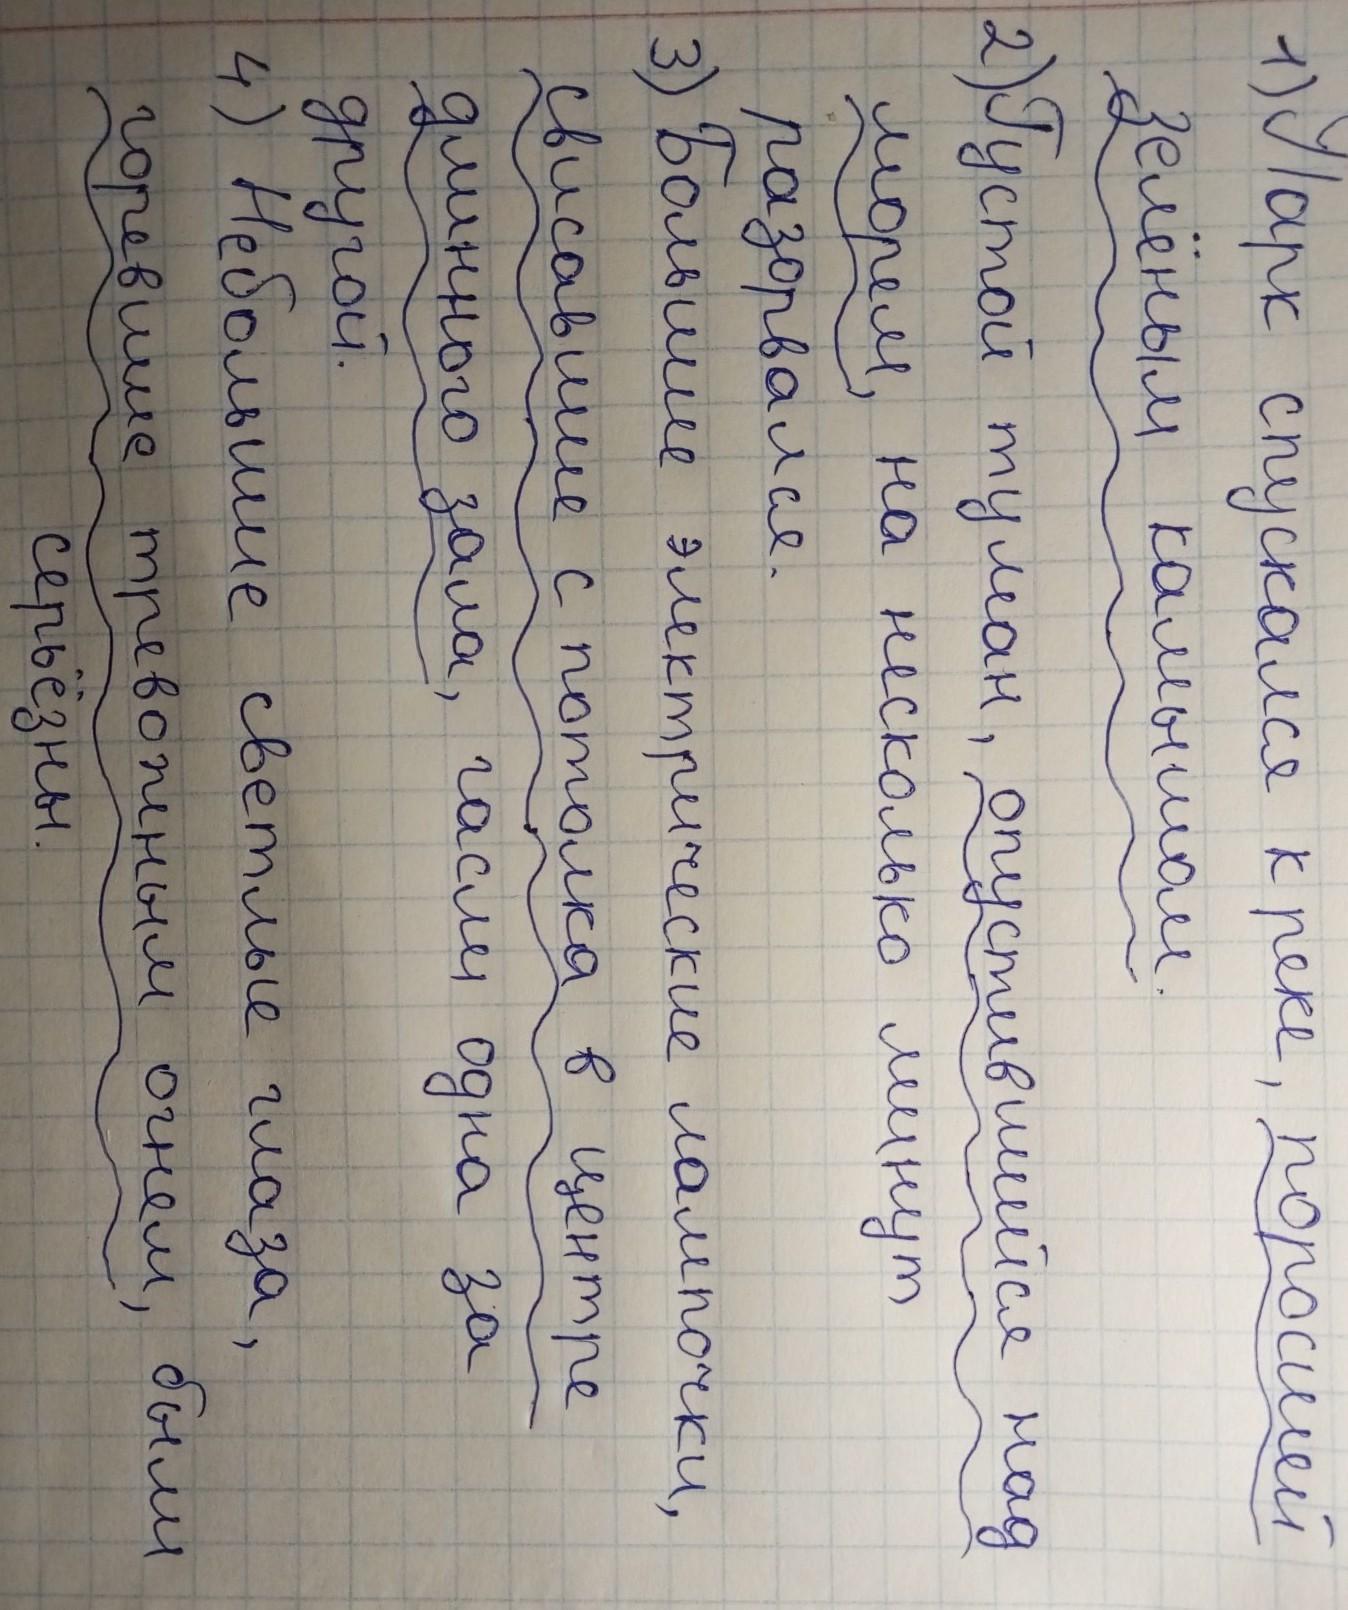 1) Парк спускался к реке, поросшей
зелёным камышом.
2) Густой туман, опустившийся над
морем, на несколько минут
разорвался.
3) Большие электрические лампочки,
свисавшие с потолка в центре
длинного зала, гасли одна за
другой.
4) Небольшие светлые глаза,
горевшие тревожным огнем, были
серьёзны.